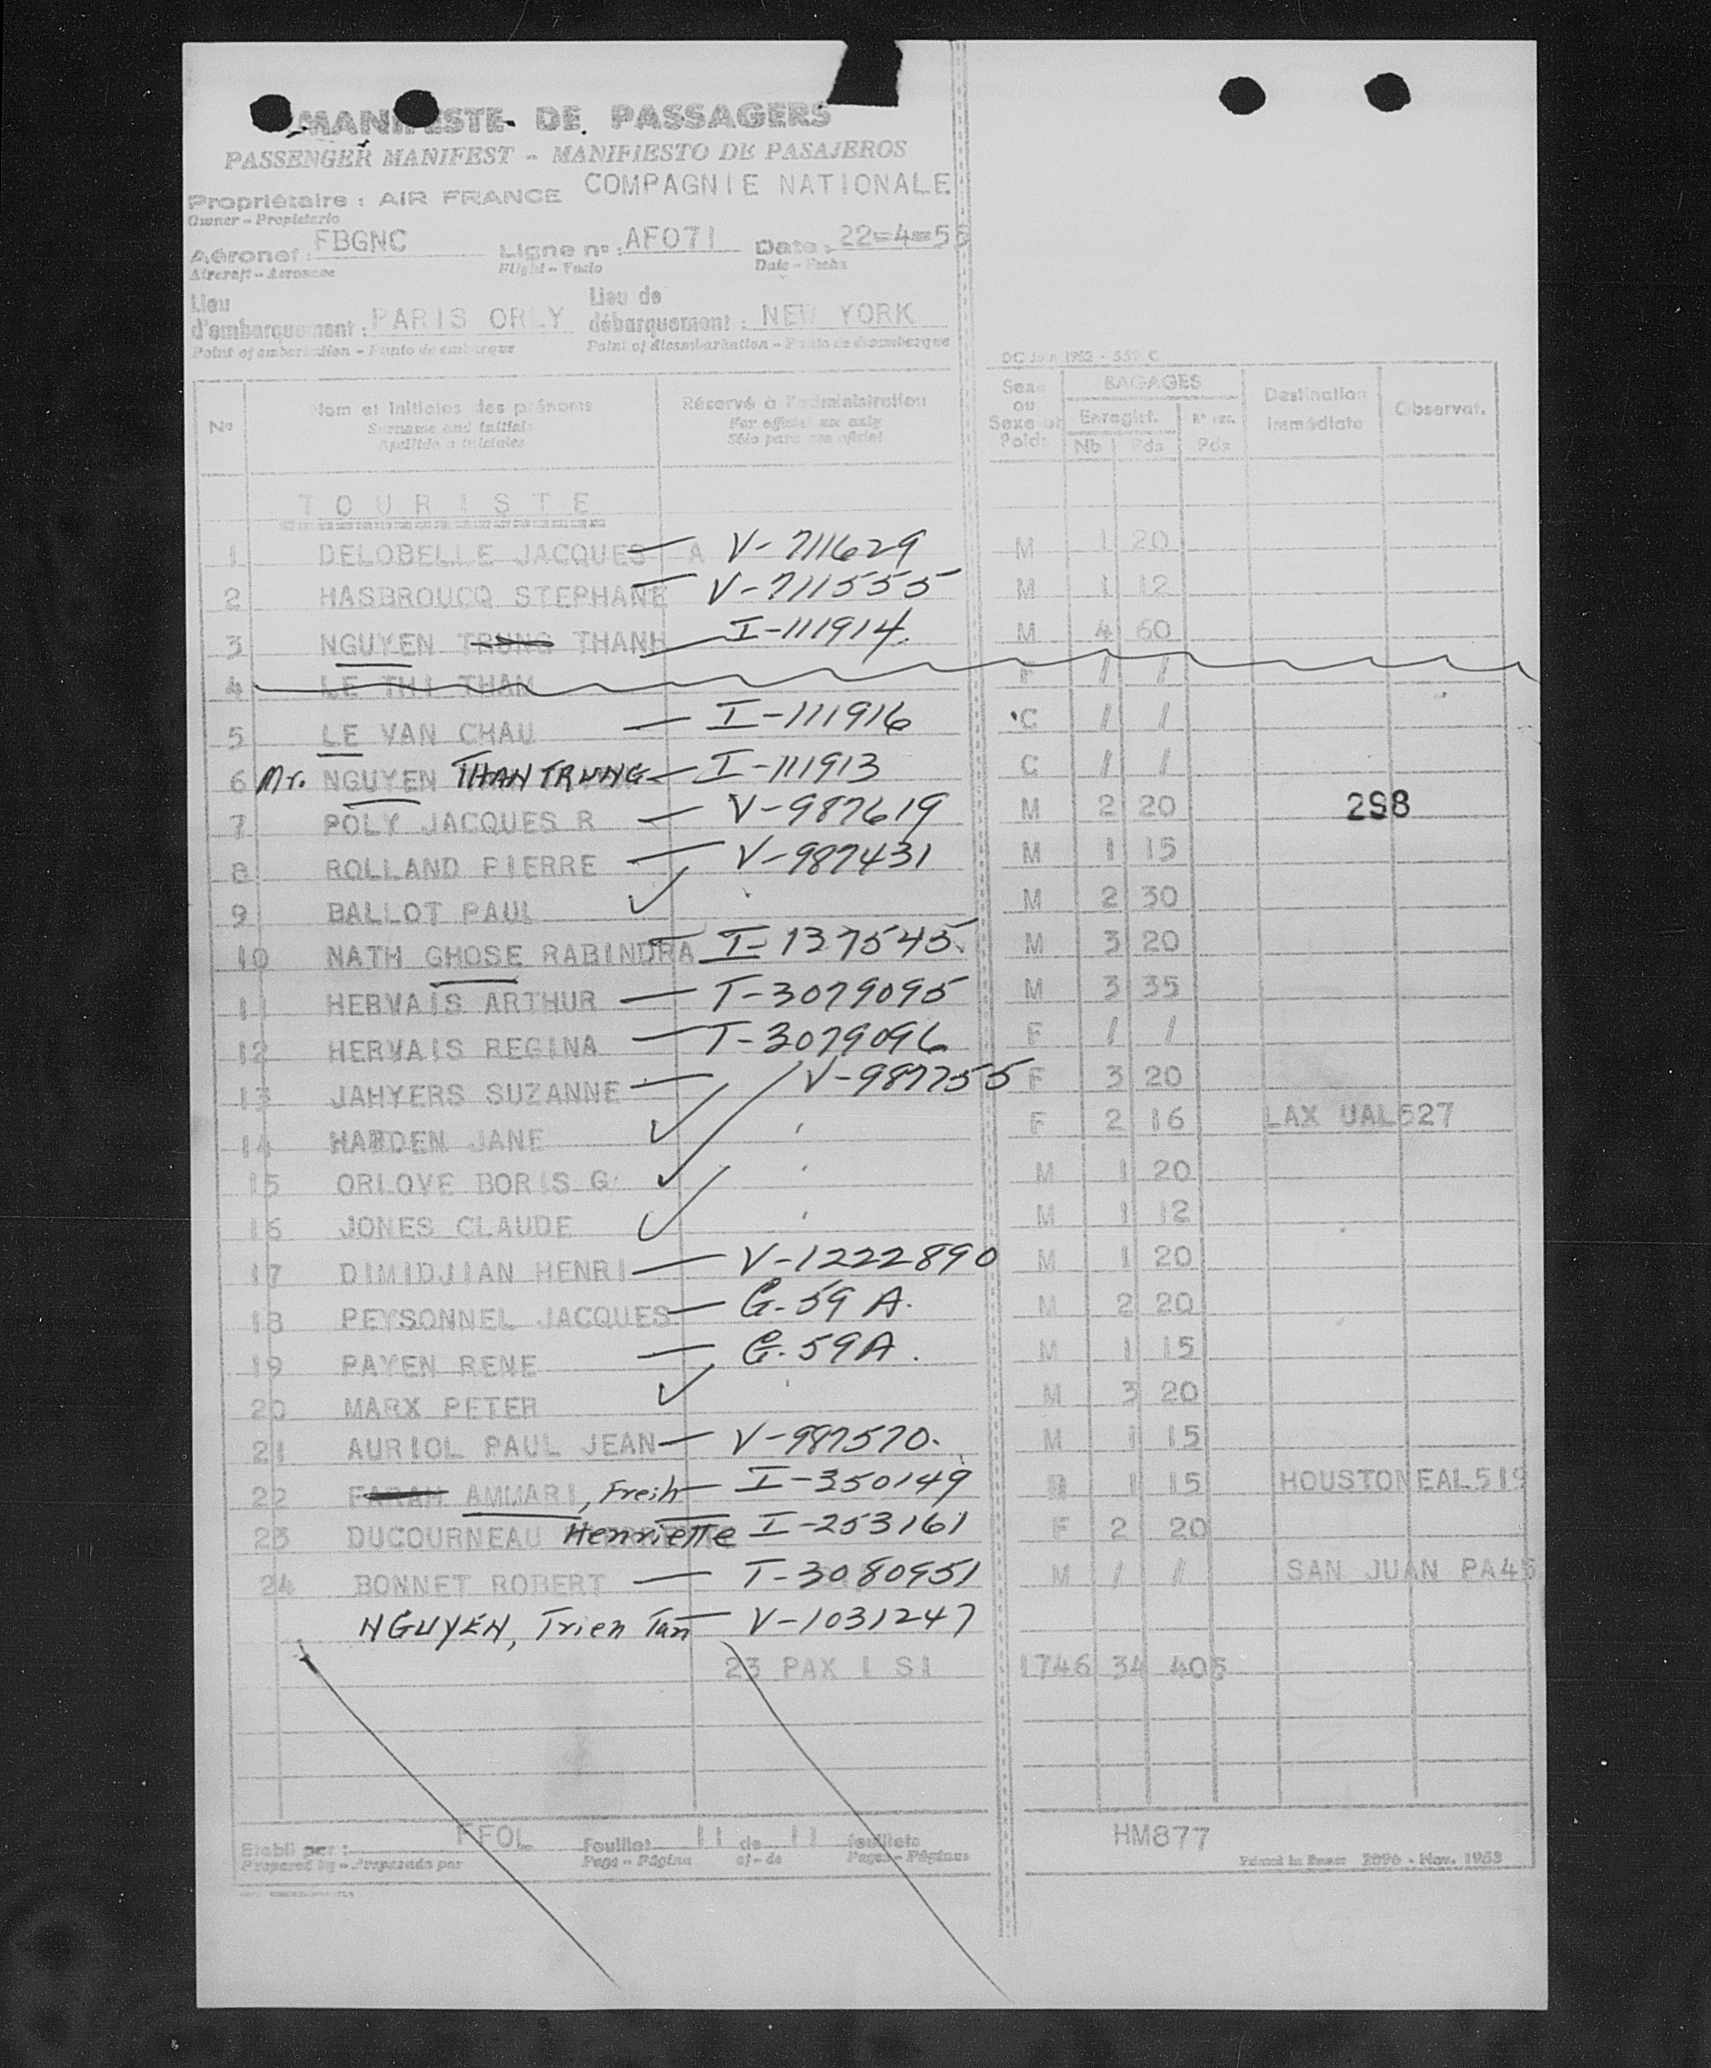 MANIFESTE DE PASSAGERS
PASSENGER MANIFEST - MANIFIESTO DE PASAJEROS
Propriétaire : AIR FRANCE COMPAGNIE NATIONALE
Owner - Propietario
Aéronef : FBGNC Ligne n° : AF071 Date : 22-4-5
Aircraft - Aeronave Flight - Vuelo Date - Fecha
Lieu d'embarquement : PARIS ORLY Lieu de débarquement : NEW YORK
Point of embarkation - Punto de embarque Point of disembarkation - Punto de desembarque
DC Juin 1952 - 559 C
N° Nom et initiales des prénoms Réservé à l'administration Sexe ou Sexe et Poids BAGAGES Destination immédiate Observat.
Surname and initials For official use only Enregist.
Apellido e iniciales Sólo para uso oficial Nb Pds Pds
TOURISTE
1 DELOBELLE JACQUES — A V-711629 M 1 20
2 HASBROUCQ STEPHANE — V-711555 M 1 12
3 NGUYEN TRUNG THANH — I-111914. M 4 60
4 LE THI THAM F / /
5 LE VAN CHAU — I-111916 C / /
6 Mr. NGUYEN THAN TRUNG — I-111913 C / /
7 POLY JACQUES R — V-987619 M 2 20 298
8 ROLLAND PIERRE — V-987431 M 1 15
9 BALLOT PAUL ✓ M 2 30
10 NATH GHOSE RABINDRA — I-137545. M 3 20
11 HERVAIS ARTHUR — T-3079095 M 3 35
12 HERVAIS REGINA — T-3079096 F / /
13 JAHYERS SUZANNE — V-987755 F 3 20
14 HARDEN JANE ✓ F 2 16 LAX UAL527
15 ORLOVE BORIS G ✓ M 1 20
16 JONES CLAUDE ✓ M 1 12
17 DIMIDJIAN HENRI — V-1222890 M 1 20
18 PEYSONNEL JACQUES — G-59 A. M 2 20
19 PAYEN RENE — G-59A. M 1 15
20 MARX PETER ✓ M 3 20
21 AURIOL PAUL JEAN — V-987570. M 1 15
22 FARAH AMMARI, Freih — I-350149 1 15 HOUSTON EAL519
23 DUCOURNEAU Henriette I-253161 F 2 20
24 BONNET ROBERT — T-3080951 M / / SAN JUAN PA45
NGUYEN, Trien Tan — V-1031247
23 PAX 1 SI 1746 34 405
Etabli par : FFOL feuillet 11 de 11 feuillets
Prepared by - Preparado por Page - Página of - de Pages - Páginas
HM877
Printed in France 2096 - Nov. 1953